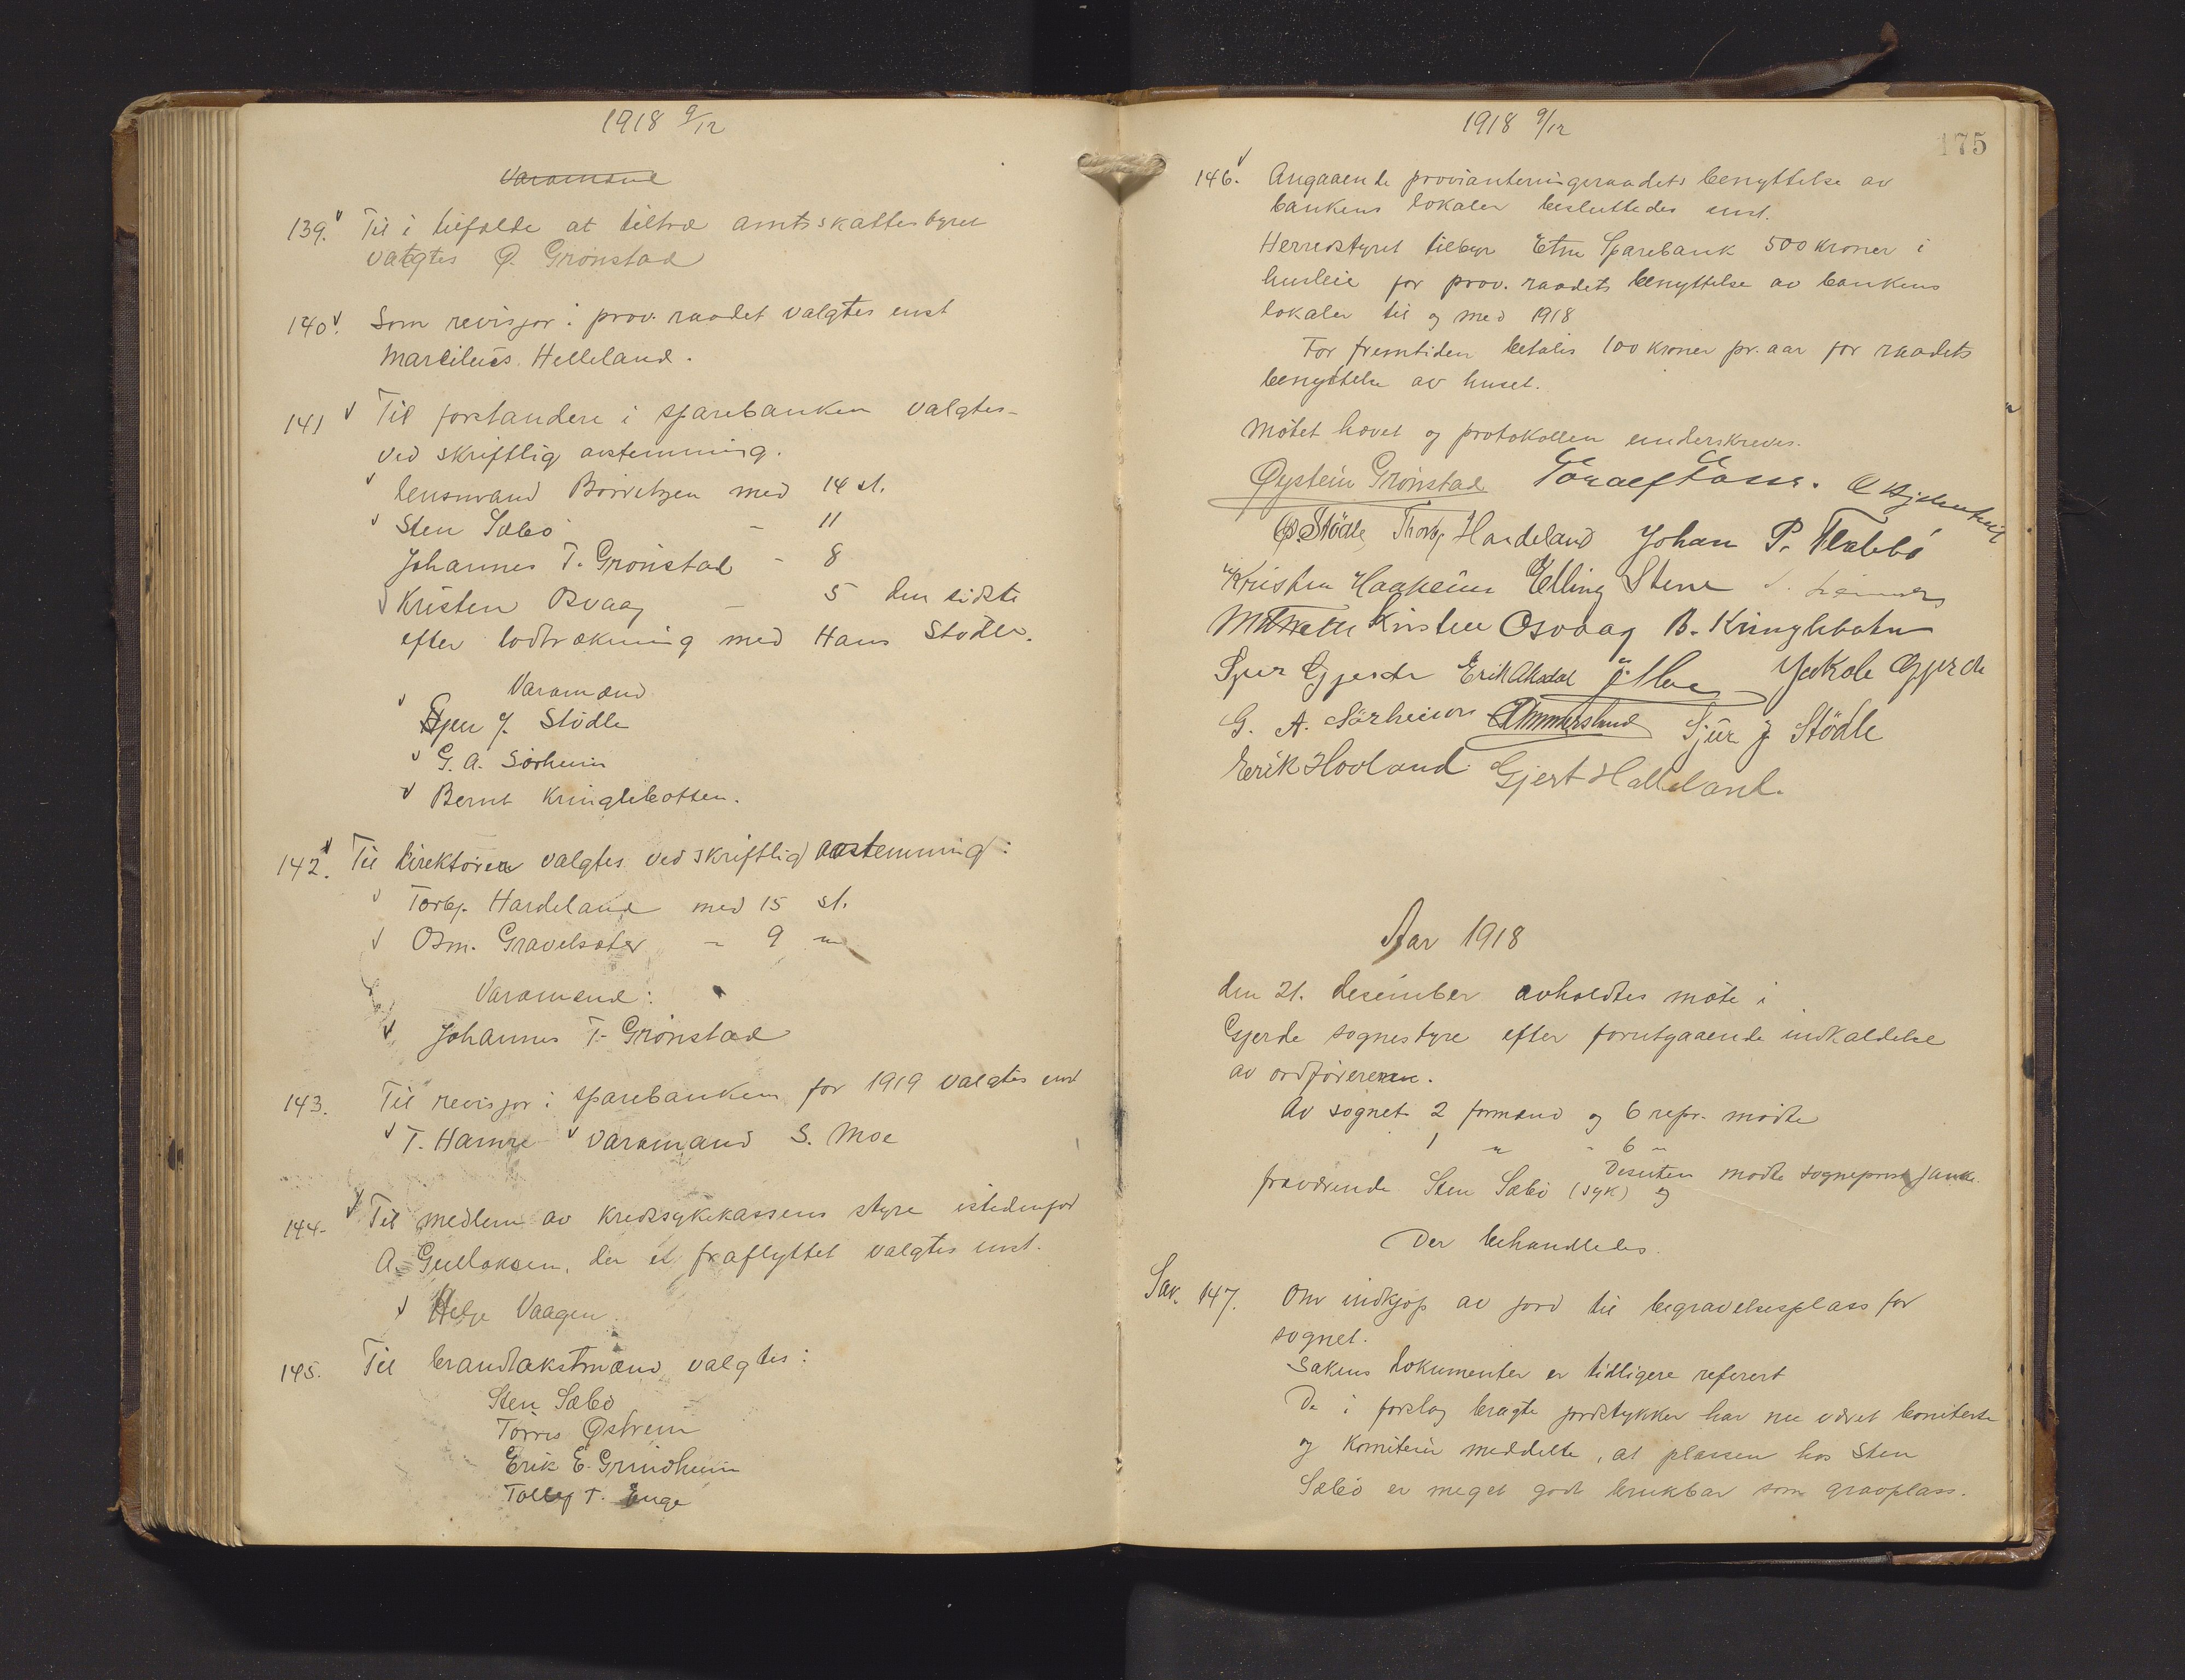 1918 9/12
Varamænd
139. Til i tilfælde at tiltræ amtsskattestyret
valgtes Ø. Grönstad
140. Som revisjor i prov. raadet valgtes enst
Marcilius Helleland.
141 Til forstandere i sparebanken valgtes
ved skriftlig avstemming.
lensmand Börretzen med 14 st.
Sten Sæbö - 11
Johannes T. Grönstad - 8
Kristen Osvaag - 5 den sidste
efter lodtrækning med Hans Stödle.
Varamænd
Sjur J. Stödle
G. A. Sörheim
Bernt Kringlebotten.
142. Til direktörer valgtes ved skriftlig avstemming:
Torbj. Hardeland med 15 st.
Osm. Gravelsæter - 9 "
Varamænd:
Johannes T. Grönstad
143. Til revisjor i sparebanken for 1919 valgtes enst
T. Hamre varamand S. Moe
144. Til medlem av kredssykekassens styre istedenfor
A. Gullaksen, der er fraflyttet valgtes enst.
Helje Vaagen
145. Til brandtakstmænd valgtes:
Sten Sæbö
Törres Östrem
Erik E. Grindheim
Tollef T. Enge
1918 9/12
175
146. Angaaende provianteringsraadets benyttelse av
bankens lokaler besluttedes enst.
Herredstyret tilbyr Etne Sparebank 500 kroner i
husleie for prov. raadets benyttelse av bankens
lokaler til og med 1918
For fremtiden betales 100 kroner pr. aar for raadets
benyttelse av huset.
Mötet hævet og protokollen underskreves.
Øystein Grönstad
Stödle Thorbj Hardeland Johan P. Flatebö
Kristen Haaheim Elling Stene
Kristen Osvaag B. Kringlebotn
Sjur Gjerde Erik Aksdal Moe Jokole Gjerde
G. A. Sörheim Sjur J Stödle
Erik Hovland Gjert Halleland.
Aar 1918
den 21. desember avholdtes möte i
Gjerde sognestyre efter forutgaaende indkaldelse
av ordföreren.
Av sognet 2 formænd og 6 repr. mödte
1 " - 6 "
fraværende Sten Sæbö (syk) og Desuten mödte sogneprest
Der behandledes.
Sak. 147. Om indkjöp av jord til begravelsesplass for
sognet.
Sakens dokumenter er tidligere referert
De i forslag bragte jordstykker har nu været
og komiteen meddelte, at plassen hos Sten
Sæbö er meget godt brukbar som gravplass.